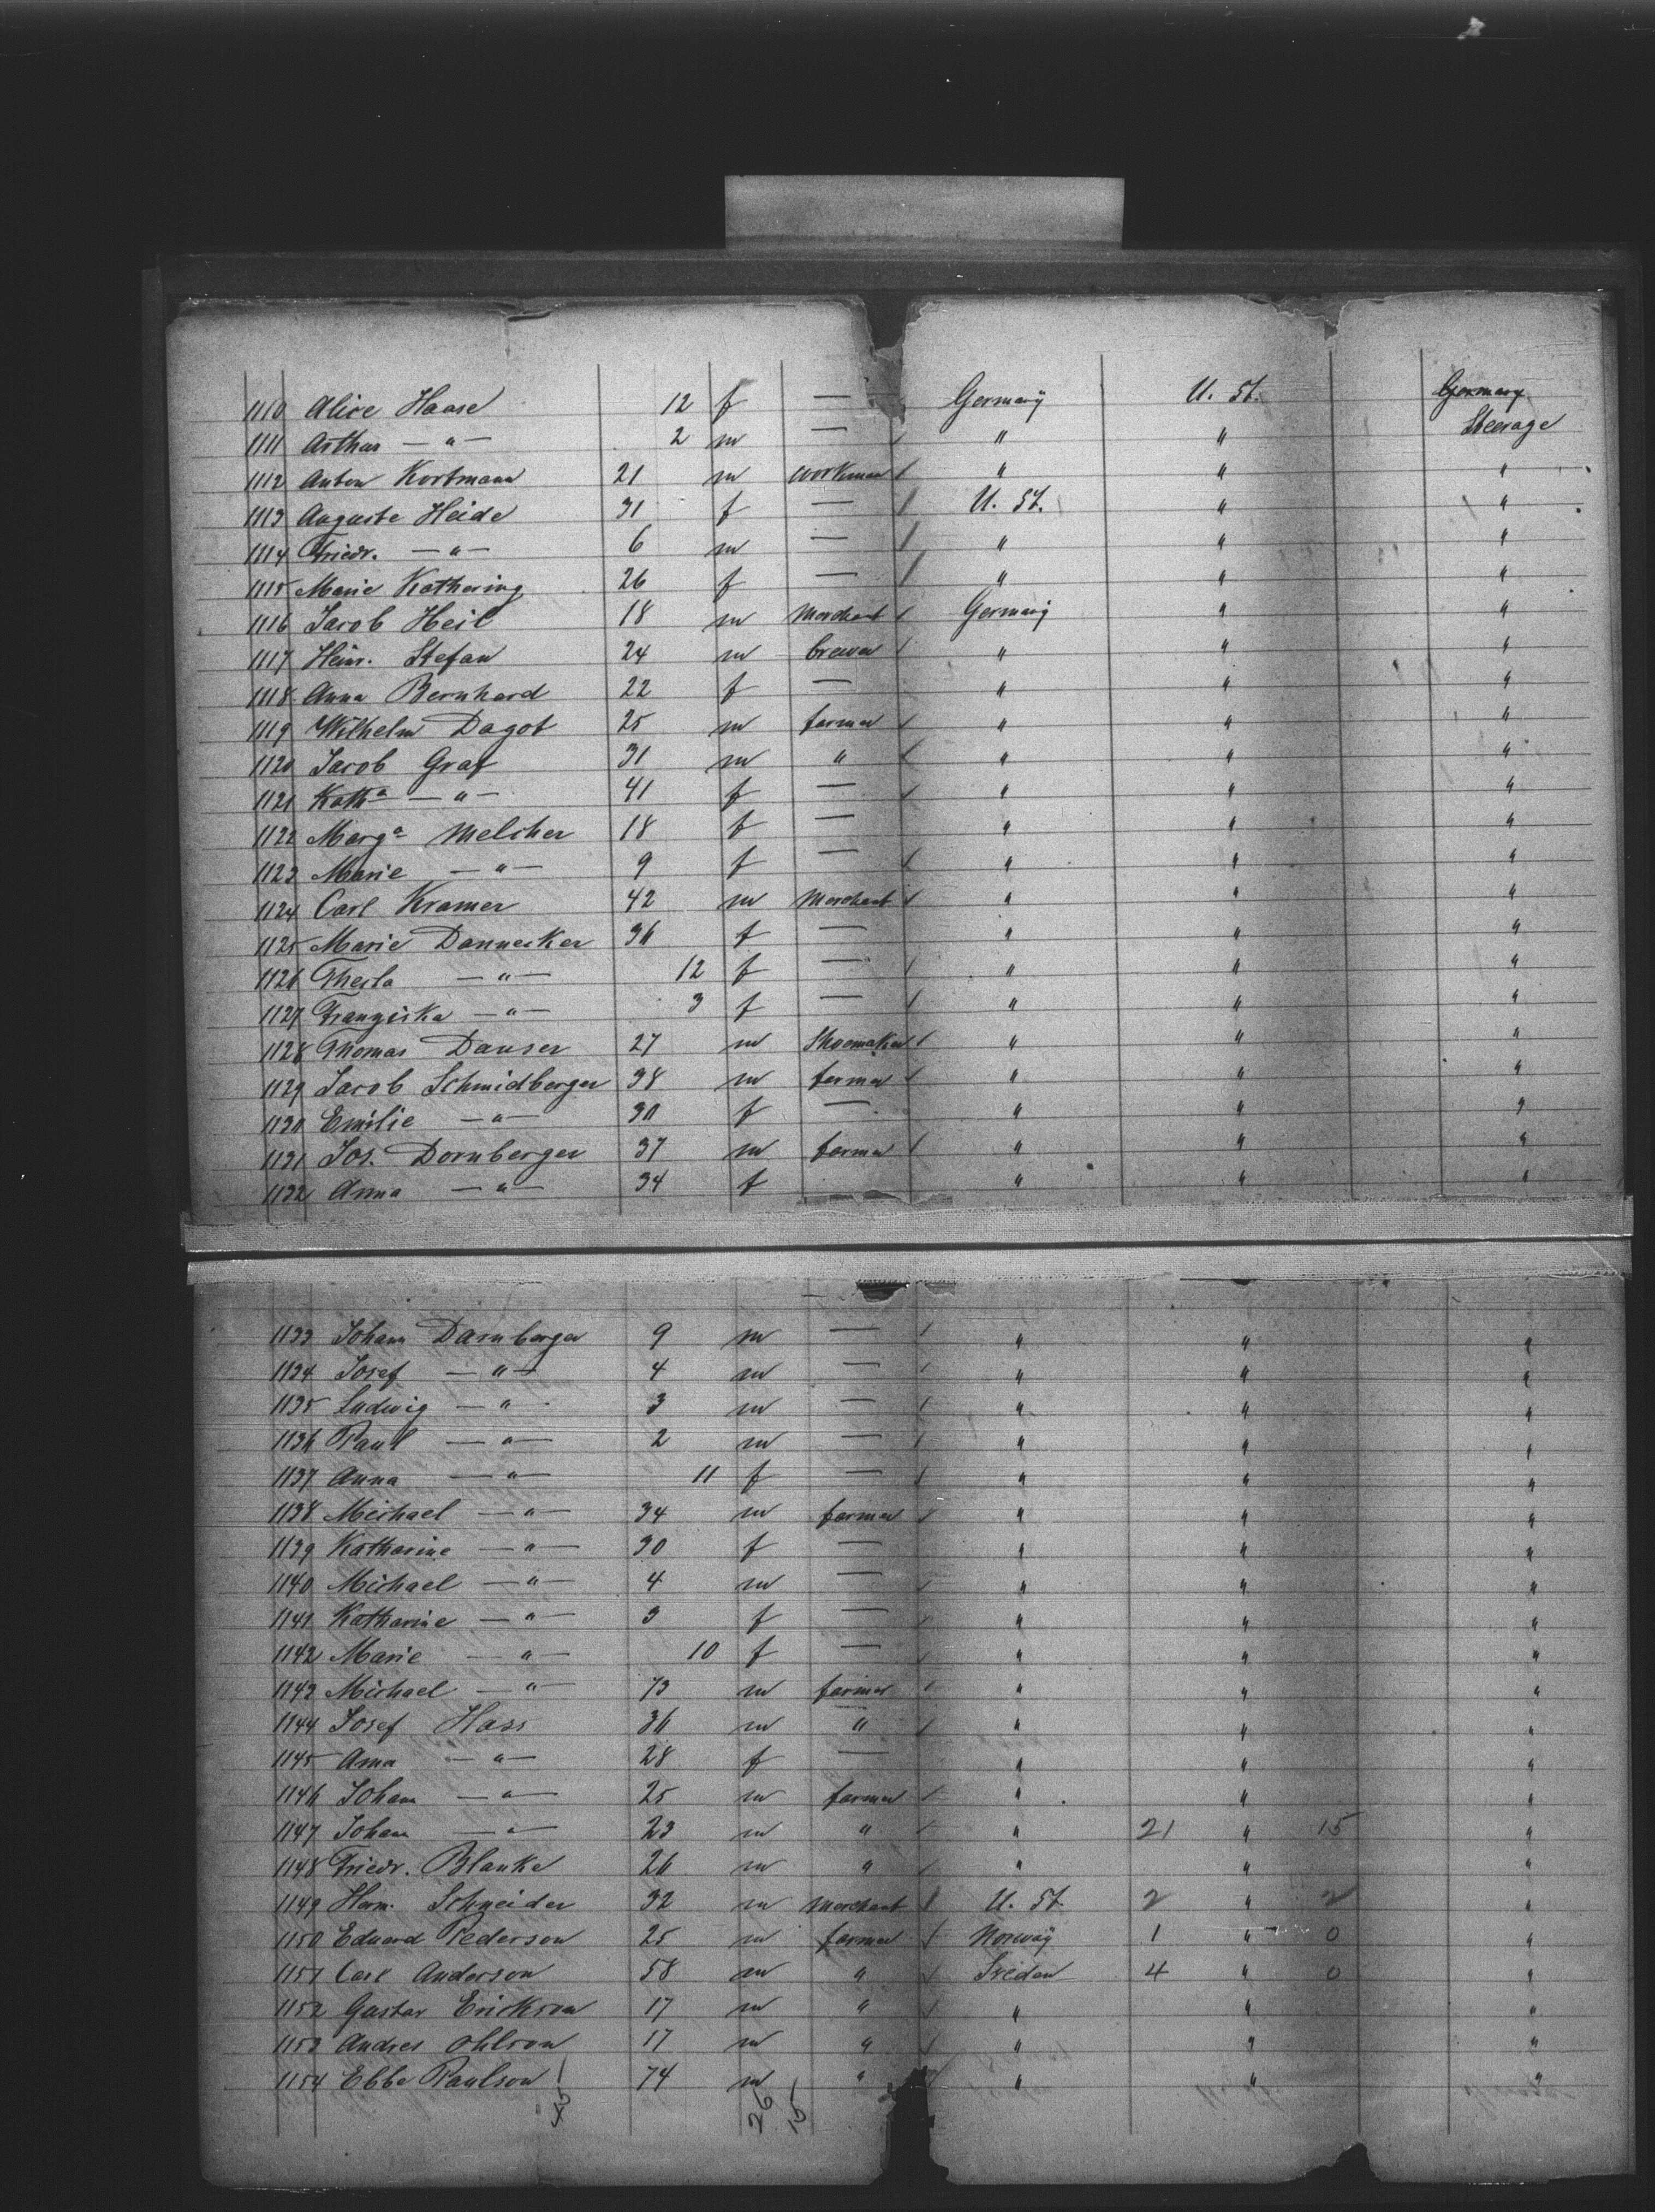 1110 Alice Haase 12 f — Germany U. St. Germany
1111 Arthur — " — 2 m — " " Steerage
1112 Anton Kortmann 21 m workman " " "
1113 Auguste Heide 31 f — U. St. " "
1114 Friedr. — " — 6 m — " " "
1115 Marie Kathering 26 f — " " "
1116 Jacob Heil 18 m Merchant Germany " "
1117 Heinr. Stefan 24 m brewer " " "
1118 Anna Bernhard 22 f — " " "
1119 Wilhelm Dagot 25 m farmer " " "
1120 Jacob Graf 31 m " " " "
1121 Kath a — " — 41 f — " " "
1122 Marg a Melcher 18 f — " " "
1123 Marie — " — 9 f — " " "
1124 Carl Kramer 42 m Merchant " " "
1125 Marie Dannecker 36 f — " " "
1126 Thecla — " — 12 f — " " "
1127 Franziska — " — 3 f — " " "
1128 Thomas Dauser 27 m Shoemaker " " "
1129 Jacob Schmidberger 38 m farmer " " "
1130 Emilie — " — 30 f — " " "
1131 Jos. Dornberger 37 m farmer " " "
1132 Anna — " — 34 f " " "
1133 Johann Darnberger 9 m — " " "
1134 Josef — " — 4 m — " " "
1135 Ludwig — " - 3 m — " " "
1136 Paul — " — 2 m — " " "
1137 Anna — " — 11 f — " " "
1138 Michael — " — 34 m farmer " " "
1139 Katharine — " — 30 f — " " "
1140 Michael — " — 4 m — " " "
1141 Katharine — " — 3 f — " " "
1142 Marie — " — 10 f — " " "
1143 Michael — " — 73 m farmer " " "
1144 Josef Hass 36 m " " " "
1145 Anna — " — 28 f — " " "
1146 Johann — " — 25 m farmer " " "
1147 Johann — " — 23 m " " 21 " 15 "
1148 Friedr. Blanke 26 m " " " "
1149 Herm. Schneider 32 m Merchant U. St. 2 " 2 "
1150 Eduard Pederson 25 m farmer Norway 1 " 0 "
1151 Carl Anderson 58 m " Sveden 4 " 0 "
1152 Gustav Erickson 17 m " " " "
1153 Andres Ohlson 17 m " " " "
1154 Ebbe Paulson 74 m " " " "
26 15